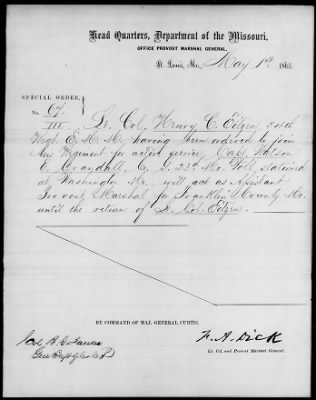 Head Quarters, Department of the Missouri,
OFFICE PROVOST MARSHAL GENERAL,
St. Louis, Mo., May 1st 1863.
SPECIAL ORDER,
No. 67.
III Lt. Col. Henry C. Eitzen, 54th
Regt. E. M. M. having been ordered to join
his Regiment for active service, Capt. Watson
E. Crandall, Co. G. 23d Mo. Vols, stationed
at Washington Mo. will act as Assistant
Provost Marshal for Franklin County Mo.
until the return of Lt. Col. Eitzen.
BY COMMAND OF MAJ. GENERAL CURTIS.
F. A. Dick
Lt. Col. and Provost Marshal General.